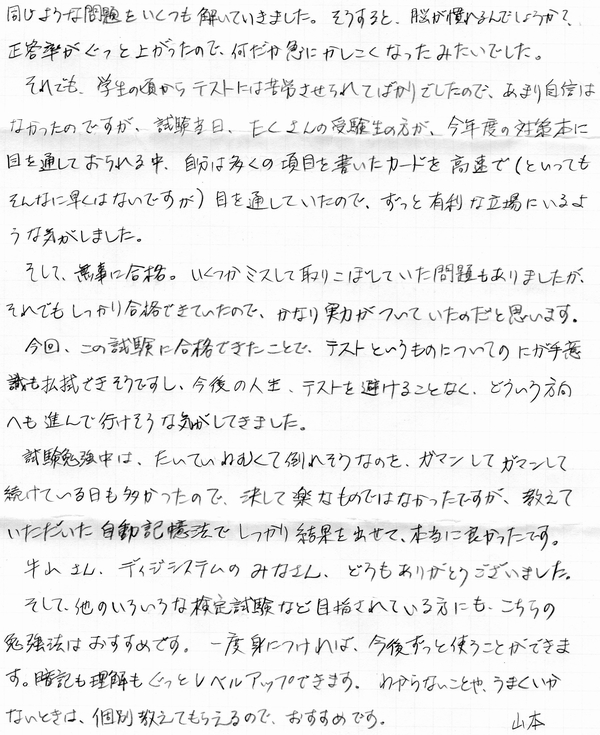 同じような問題をいくつも解いていきました。そうすると、脳が慣れるんでしょうかで、
正答率がぐっと上がったので、何だか急にかしこくなったみたいでした。
それでも、学生の頃からテストには苦労させられてばかりでしたので、あまり自信は
なかったのですが、試験当日、たくさんの受験生の方が、今年度の対策本に
目を通しておられる中、自分は多くの項目を書いたカードを高速で(といっても
そんなに早くはないですが)目を通していたので、ずっと有利な立場にいるよ
うな気がしました。
そして、無事に合格。いくつかミスして取りこぼしていた問題もありましたが、
それでもしっかり合格できていたので、かなり実力がついていたのだと思います。
今回、この試験に合格できたことで、テストというものについてのにが手意
識も払拭できそうですし、今後の人生、テストを避けることなく、どういう方向
へも進んで行けそうな気がしてきました。
試験勉強中は、たいていねむくて倒れそうなのを、ガマンしてガマンして
続けている日も多かったので、決して楽なものではなかったですが、教えて
いただいた自動記憶法でしっかり結果を出せて、本当に良かったです。
牛山さん、ディジシステムのみなさん、どうもありがとうございました。
そして、他のいろいろな検定試験など目指されている方にも、こちらの
勉強法はおすすめです。一度身につければ、今後ずっと使うことができま
す。暗記も理解もぐっとレベルアップできます。わからないことや、うまくいか
ないときは、個別教えてもらえるので、おすすめです。
山本